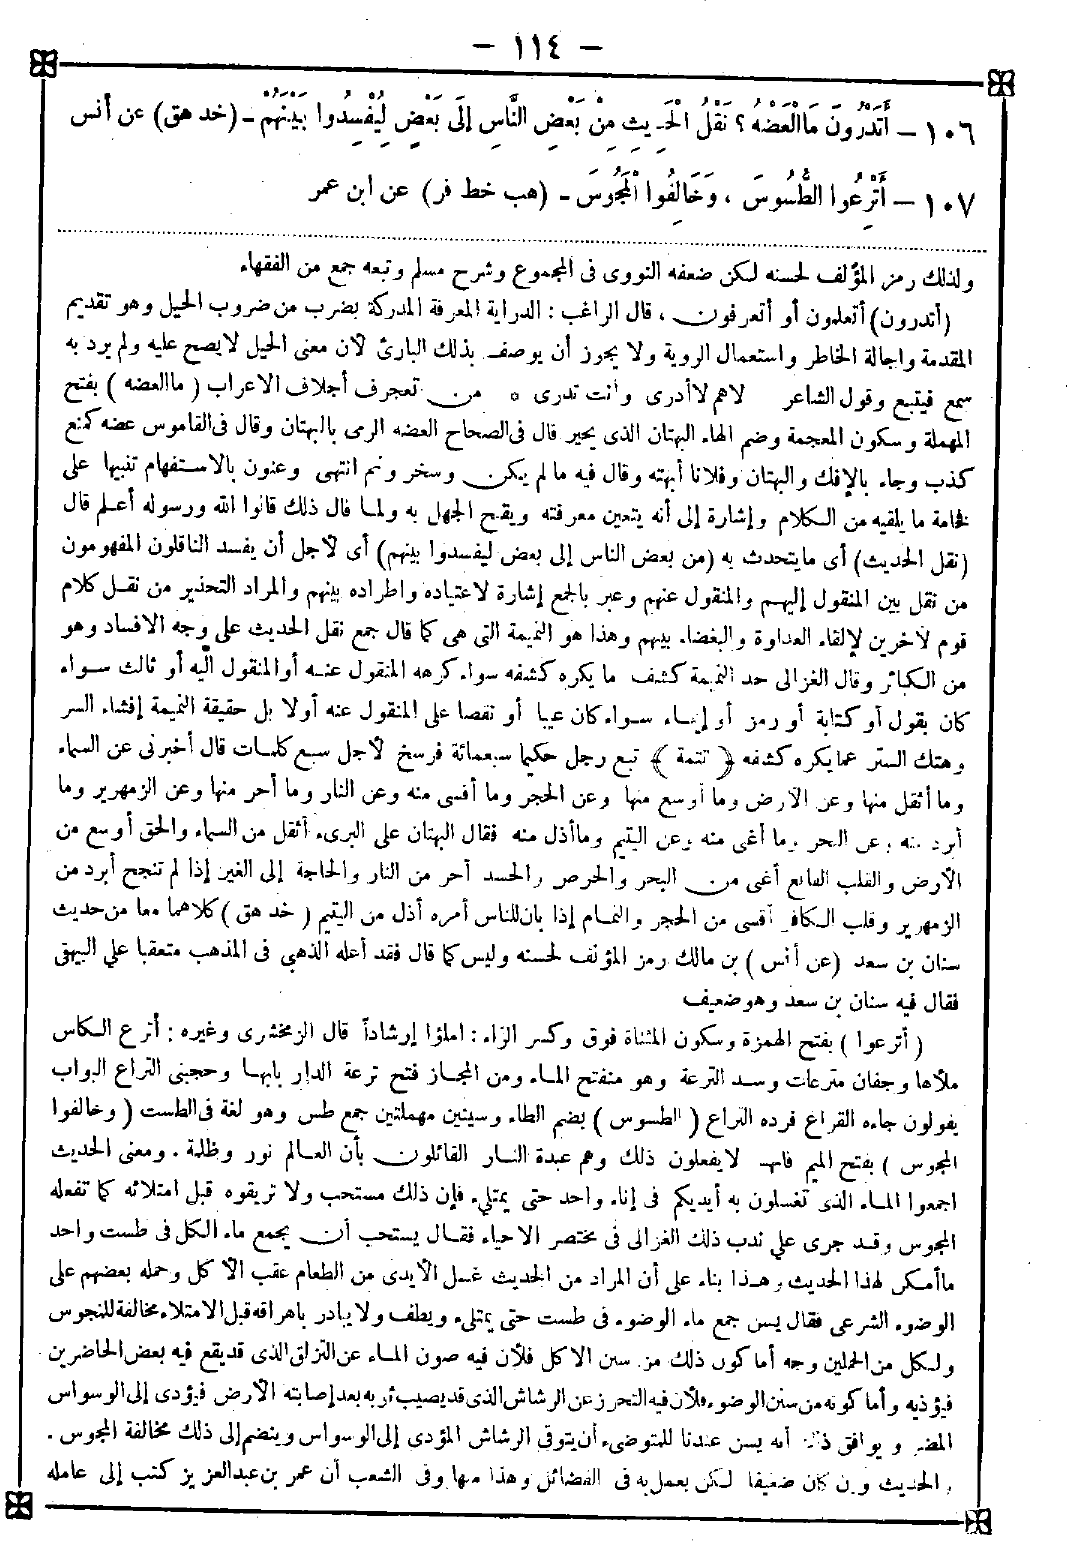 – ١١٤ –
١٠٦ – أَتَدْرُونَ مَا الْعَضْهُ ؟ نَقْلُ الْحَدِيثِ مِنْ بَعْضِ النَّاسِ إِلَى بَعْضٍ لِيُفْسِدُوا بَيْنَهُمْ – (خد هق) عن أنس
١٠٧ – أَتْرِعُوا الطُّسُوسَ ، وَخَالِفُوا الْمَجُوسَ – (هب خط فر) عن ابن عمر
ولذلك رمز المؤلف لحسنه لكن ضعفه النووى فى المجموع وشرح مسلم وتبعه جمع من الفقهاء
(أتدرون) أتعلمون أو أتعرفون ، قال الراغب : الدراية المعرفة المدركة بضرب من ضروب الحيل وهو تقديم
المقدمة واجالة الخاطر واستعمال الروية ولا يجوز أن يوصف بذلك البارئ لأن معنى الحيل لا يصح عليه ولم يرد به
سمع فيتبع وقول الشاعر لاهم لا أدرى وأنت تدرى * من تعجرف أجلاف الاعراب ( ما العضه ) بفتح
المهملة وسكون المعجمة وضم الهاء البهتان الذى يحير قال فى الصحاح العضه الرمى بالبهتان وقال فى القاموس عضه كمنع
كذب وجاء بالإفك والبهتان وفلانا أبهته وقال فيه ما لم يكن وسخر ونم انتهى وعنون بالاستفهام تنبيها على
فخامة ما يلقيه من الكلام وإشارة إلى أنه يتعين معرفته ويقبح الجهل به ولما قال ذلك قالوا الله ورسوله أعلم قال
(نقل الحديث) أى ما يتحدث به (من بعض الناس إلى بعض ليفسدوا بينهم) أى لأجل أن يفسد الناقلون المفهومون
من نقل بين المنقول إليهم والمنقول عنهم وعبر بالجمع إشارة لاعتياده واطراده بينهم والمراد التحذير من نقل كلام
قوم لآخرين لإلقاء العداوة والبغضاء بينهم وهذا هو النميمة التى هى كما قال جمع نقل الحديث على وجه الافساد وهو
من الكبائر وقال الغزالى حد النميمة كشف ما يكره كشفه سواء كرهه المنقول عنه أو المنقول اليه أو ثالث سواء
كان بقول أو كتابة أو رمز أو إيماء سواء كان عيبا أو نقصا على المنقول عنه أولا بل حقيقة النميمة إفشاء السر
وهتك الستر عما يكره كشفه ﴿ تتمة ﴾ تبع رجل حكيما سبعمائة فرسخ لأجل سبع كلمات قال أخبرنى عن السماء
وما أثقل منها وعن الأرض وما أوسع منها وعن الحجر وما أقسى منه وعن النار وما أحر منها وعن الزمهرير وما
أبرد منه وعن البحر وما أغنى منه وعن اليتيم وما أذل منه فقال البهتان على البرىء أثقل من السماء والحق أوسع من
الأرض والقلب القانع أغنى من البحر والحرص والحسد أحر من النار والحاجة إلى الغير إذا لم تنجح أبرد من
الزمهرير وقلب الكافر أقسى من الحجر والنمام إذا بان للناس أمره أذل من اليتيم ( خد هق ) كلاهما معا من حديث
سنان بن سعد (عن أنس ) بن مالك رمز المؤلف لحسنه وليس كما قال فقد أعله الذهبى فى المذهب متعقبا على البيهقى
فقال فيه سنان بن سعد وهو ضعيف
( أترعوا ) بفتح الهمزة وسكون المثناة فوق وكسر الراء : املؤا إرشاداً قال الزمخشرى وغيره : أترع الكاس
ملأها وجفان مترعات وسد الترعة وهو منفتح الماء ومن المجاز فتح ترعة الدار بابها وحجبنى التراع البواب
يقولون جاءه القراع فرده التراع ( الطسوس ) بضم الطاء وسينين مهملتين جمع طس وهو لغة فى الطست ( وخالفوا
المجوس ) بفتح الميم فانهم لا يفعلون ذلك وهم عبدة النار القائلون بأن العالم نور وظلمة . ومعنى الحديث
اجمعوا الماء الذى تغسلون به أيديكم فى إناء واحد حتى يمتلىء فإن ذلك مستحب ولا تريقوه قبل امتلائه كما تفعله
المجوس وقد جرى على ندب ذلك الغزالى فى مختصر الاحياء فقال يستحب أن يجمع ماء الكل فى طست واحد
ما أمكن لهذا الحديث وهذا بناء على أن المراد من الحديث غسل الأيدى من الطعام عقب الأكل وحمله بعضهم على
الوضوء الشرعى فقال يسن جمع ماء الوضوء فى طست حتى يمتلىء ويطف ولا يبادر باهراقه قبل الامتلاء مخالفة للمجوس
ولكل من الحملين وجه أما كون ذلك من سنن الاكل فلأن فيه صون الماء عن التزاق الذى قد يقع فيه بعض الحاضرين
فيؤذيه وأما كونه من سنن الوضوء فلأن فيه التحرز عن الرشاش الذى قد يصيب ثوبه بعد إصابته الأرض فيؤدى إلى الوسواس
المضر ويوافق ذلك أنه يسن عندنا للمتوضىء أن يتوقى الرشاش المؤدى إلى الوسواس وينضم إلى ذلك مخالفة المجوس .
والحديث وإن كان ضعيفا لكن يعمل به فى الفضائل وهذا منها وفى الشعب أن عمر بن عبد العزيز كتب إلى عامله